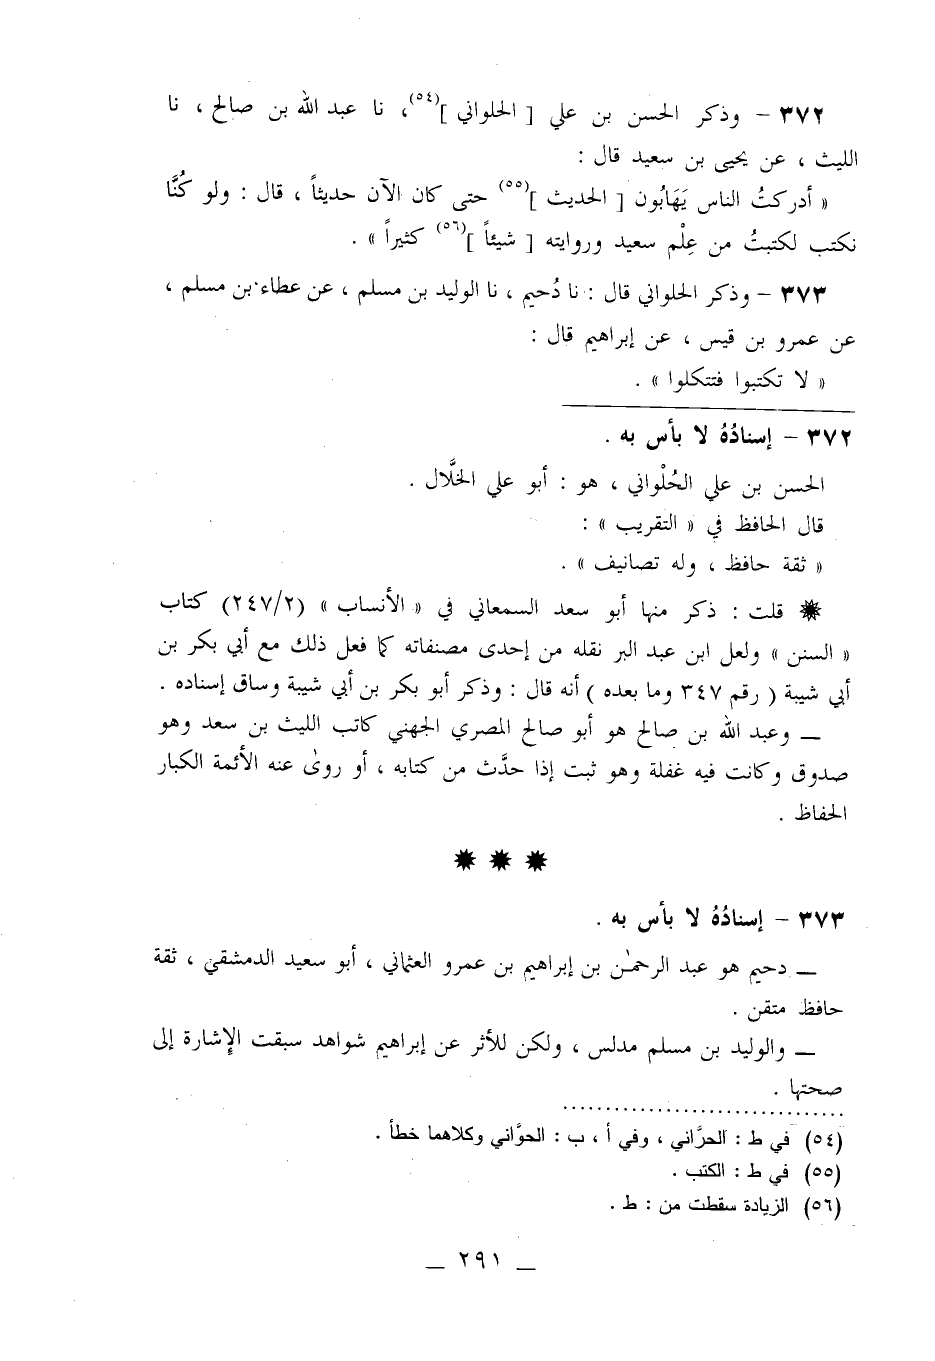 ٣٧٢ – وذكر الحسن بن علي [ الحلواني ](٥٤)، نا عبد الله بن صالح ، نا
الليث ، عن يحيى بن سعيد قال :
« أدركتُ الناس يَهَابُون [ الحديث ](٥٥) حتى كان الآن حديثاً ، قال : ولو كُنَّا
نكتب لكتبتُ من عِلْم سعيد وروايته [ شيئاً ](٥٦) كثيراً » .
٣٧٣ – وذكر الحلواني قال : نا دُحيم ، نا الوليد بن مسلم ، عن عطاء بن مسلم ،
عن عمرو بن قيس ، عن إبراهيم قال :
« لا تكتبوا فتتكلوا » .
٣٧٢ – إسنادُهُ لا بأس به .
الحسن بن علي الحُلْواني ، هو : أبو علي الخلَّال .
قال الحافظ في « التقريب » :
« ثقة حافظ ، وله تصانيف » .
✹ قلت : ذكر منها أبو سعد السمعاني في « الأنساب » (٢٤٧/٢) كتاب
« السنن » ولعل ابن عبد البر نقله من إحدى مصنفاته كما فعل ذلك مع أبي بكر بن
أبي شيبة ( رقم ٣٤٧ وما بعده ) أنه قال : وذكر أبو بكر بن أبي شيبة وساق إسناده .
ــ وعبد الله بن صالح هو أبو صالح المصري الجهني كاتب الليث بن سعد وهو
صدوق وكانت فيه غفلة وهو ثبت إذا حدَّث من كتابه ، أو روىٰ عنه الأئمة الكبار
الحفاظ .
✹ ✹ ✹
٣٧٣ – إسنادُهُ لا بأس به .
ــ دحيم هو عبد الرحمٰن بن إبراهيم بن عمرو العثماني ، أبو سعيد الدمشقي ، ثقة
حافظ متقن .
ــ والوليد بن مسلم مدلس ، ولكن للأثر عن إبراهيم شواهد سبقت الإشارة إلى
صحتها .
(٥٤) في ط : الحرَّاني ، وفي أ ، ب : الحوَّاني وكلاهما خطأ .
(٥٥) في ط : الكتب .
(٥٦) الزيادة سقطت من : ط .
ــ ٢٩١ ــ